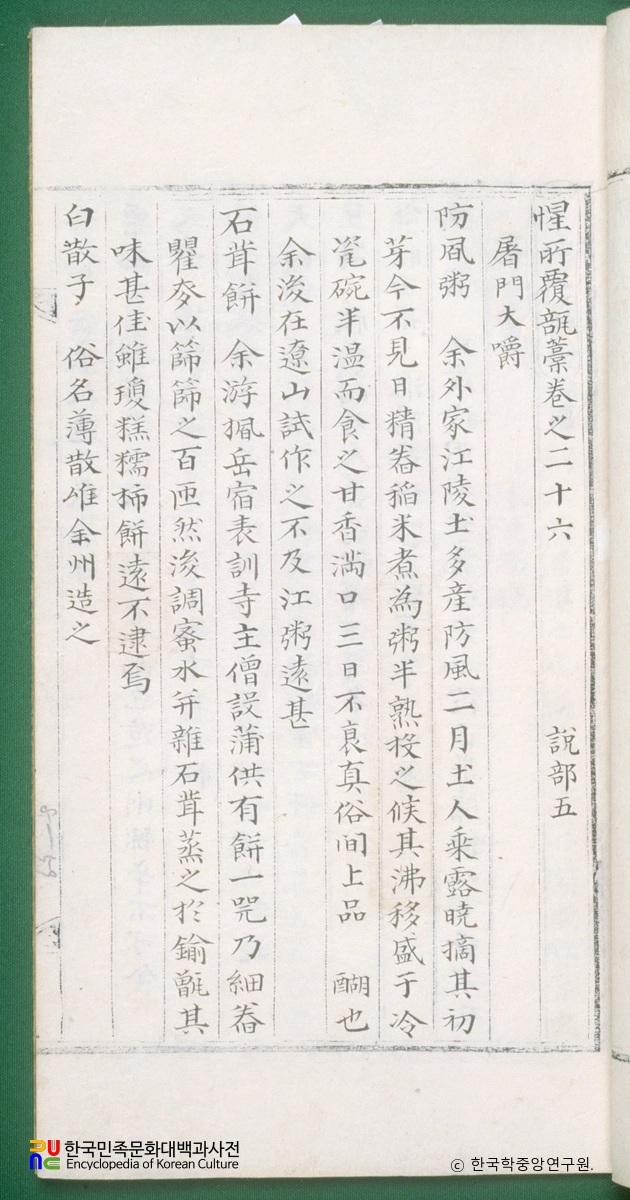 惺所覆瓿藁卷之二十六 說部五
屠門大嚼
防凮粥 余外家江陵圡多産防風二月圡人乘露曉摘其初
芽令不見日精舂稲米煮為粥半熟投之候其沸移盛于冷
瓷碗半温而食之甘香満口三日不衰真俗间上品 醐也
余後在遼山試作之不及江粥遠甚
石茸餅 余游楓岳宿表訓寺主僧設蒲供有餅一咒乃細舂
瞿麥以篩篩之百匝然後調蜜水并雜石茸蒸之於鍮甑其
味甚佳雖瓊糕糯柿餅遠不逮焉
白散子 俗名薄散唯全州造之
한국민족문화대백과사전
Encyclopedia of Korean Culture
© 한국학중앙연구원.